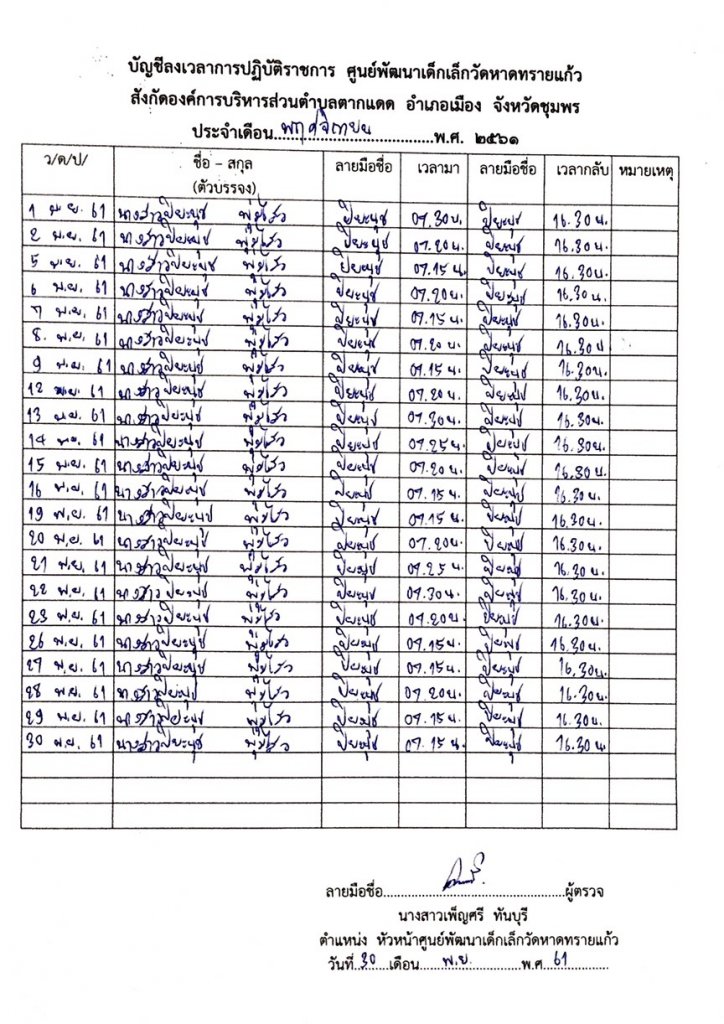 บัญชีลงเวลาการปฏิบัติราชการ ศูนย์พัฒนาเด็กเล็กวัดหาดทรายแก้ว
สังกัดองค์การบริหารส่วนตำบลตากแดด อำเภอเมือง จังหวัดชุมพร
ประจำเดือน พฤศจิกายน พ.ศ. ๒๕๖๑
ว/ด/ป/ ชื่อ – สกุล (ตัวบรรจง) ลายมือชื่อ เวลามา ลายมือชื่อ เวลากลับ หมายเหตุ
1 พ.ย. 61 นางสาวปิยะนุช พุ่มไสว ปิยะนุช 07.30น. ปิยะนุช 16.30น.
2 พ.ย. 61 นางสาวปิยะนุช พุ่มไสว ปิยะนุช 07.20น. ปิยะนุช 16.30น.
5 พ.ย. 61 นางสาวปิยะนุช พุ่มไสว ปิยะนุช 07.15น. ปิยะนุช 16.30น.
6 พ.ย. 61 นางสาวปิยะนุช พุ่มไสว ปิยะนุช 07.20น. ปิยะนุช 16.30น.
7 พ.ย. 61 นางสาวปิยะนุช พุ่มไสว ปิยะนุช 07.15น. ปิยะนุช 16.30น.
8 พ.ย. 61 นางสาวปิยะนุช พุ่มไสว ปิยะนุช 07.20น. ปิยะนุช 16.30น
9 พ.ย. 61 นางสาวปิยะนุช พุ่มไสว ปิยะนุช 07.15น. ปิยะนุช 16.30น.
12 พ.ย. 61 นางสาวปิยะนุช พุ่มไสว ปิยะนุช 07.20น. ปิยะนุช 16.30น.
13 พ.ย. 61 นางสาวปิยะนุช พุ่มไสว ปิยะนุช 07.30น. ปิยะนุช 16.30น.
14 พ.ย. 61 นางสาวปิยะนุช พุ่มไสว ปิยะนุช 07.25น. ปิยะนุช 16.30น.
15 พ.ย. 61 นางสาวปิยะนุช พุ่มไสว ปิยะนุช 07.20น. ปิยะนุช 16.30น.
16 พ.ย. 61 นางสาวปิยะนุช พุ่มไสว ปิยะนุช 07.15น. ปิยะนุช 16.30น.
19 พ.ย. 61 นางสาวปิยะนุช พุ่มไสว ปิยะนุช 07.15น. ปิยะนุช 16.30น.
20 พ.ย. 61 นางสาวปิยะนุช พุ่มไสว ปิยะนุช 07.20น. ปิยะนุช 16.30น.
21 พ.ย. 61 นางสาวปิยะนุช พุ่มไสว ปิยะนุช 07.25น. ปิยะนุช 16.30น.
22 พ.ย. 61 นางสาวปิยะนุช พุ่มไสว ปิยะนุช 07.30น. ปิยะนุช 16.30น.
23 พ.ย. 61 นางสาวปิยะนุช พุ่มไสว ปิยะนุช 07.20น. ปิยะนุช 16.30น.
26 พ.ย. 61 นางสาวปิยะนุช พุ่มไสว ปิยะนุช 07.15น. ปิยะนุช 16.30น.
27 พ.ย. 61 นางสาวปิยะนุช พุ่มไสว ปิยะนุช 07.15น. ปิยะนุช 16.30น.
28 พ.ย. 61 นางสาวปิยะนุช พุ่มไสว ปิยะนุช 07.20น. ปิยะนุช 16.30น.
29 พ.ย. 61 นางสาวปิยะนุช พุ่มไสว ปิยะนุช 07.15น. ปิยะนุช 16.30น.
30 พ.ย. 61 นางสาวปิยะนุช พุ่มไสว ปิยะนุช 07.15น. ปิยะนุช 16.30น.
ลายมือชื่อ ผู้ตรวจ
นางสาวเพ็ญศรี ทันบุรี
ตำแหน่ง หัวหน้าศูนย์พัฒนาเด็กเล็กวัดหาดทรายแก้ว
วันที่ 30 เดือน พ.ย. พ.ศ. 61